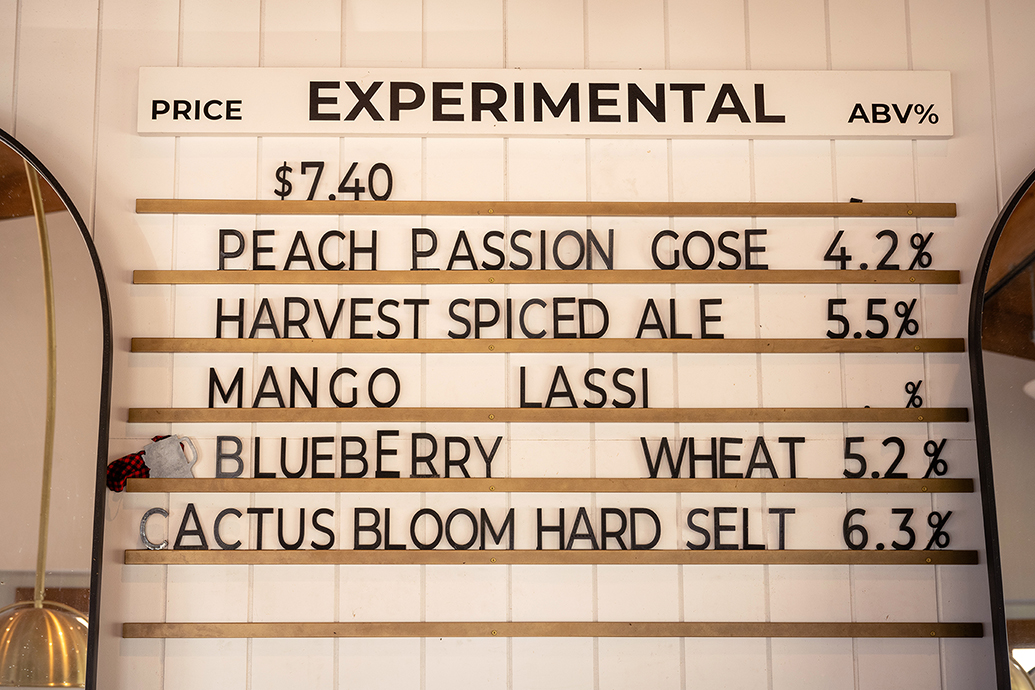 PRICE EXPERIMENTAL ABV%
$7.40 .
PEACH PASSION GOSE 4.2%
HARVEST SPICED ALE 5.5%
MANGO LASSI . %
BLUEBERRY WHEAT 5.2%
CACTUS BLOOM HARD SELT 6.3%